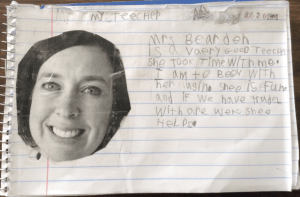 MY TEECHER
Mrs Bearden
Is a Vaery GOOD Teecher
She took Time With me.
I am to BODY With
her shee Is FUNe
and IF We have
With are werk shee
HeLPs.